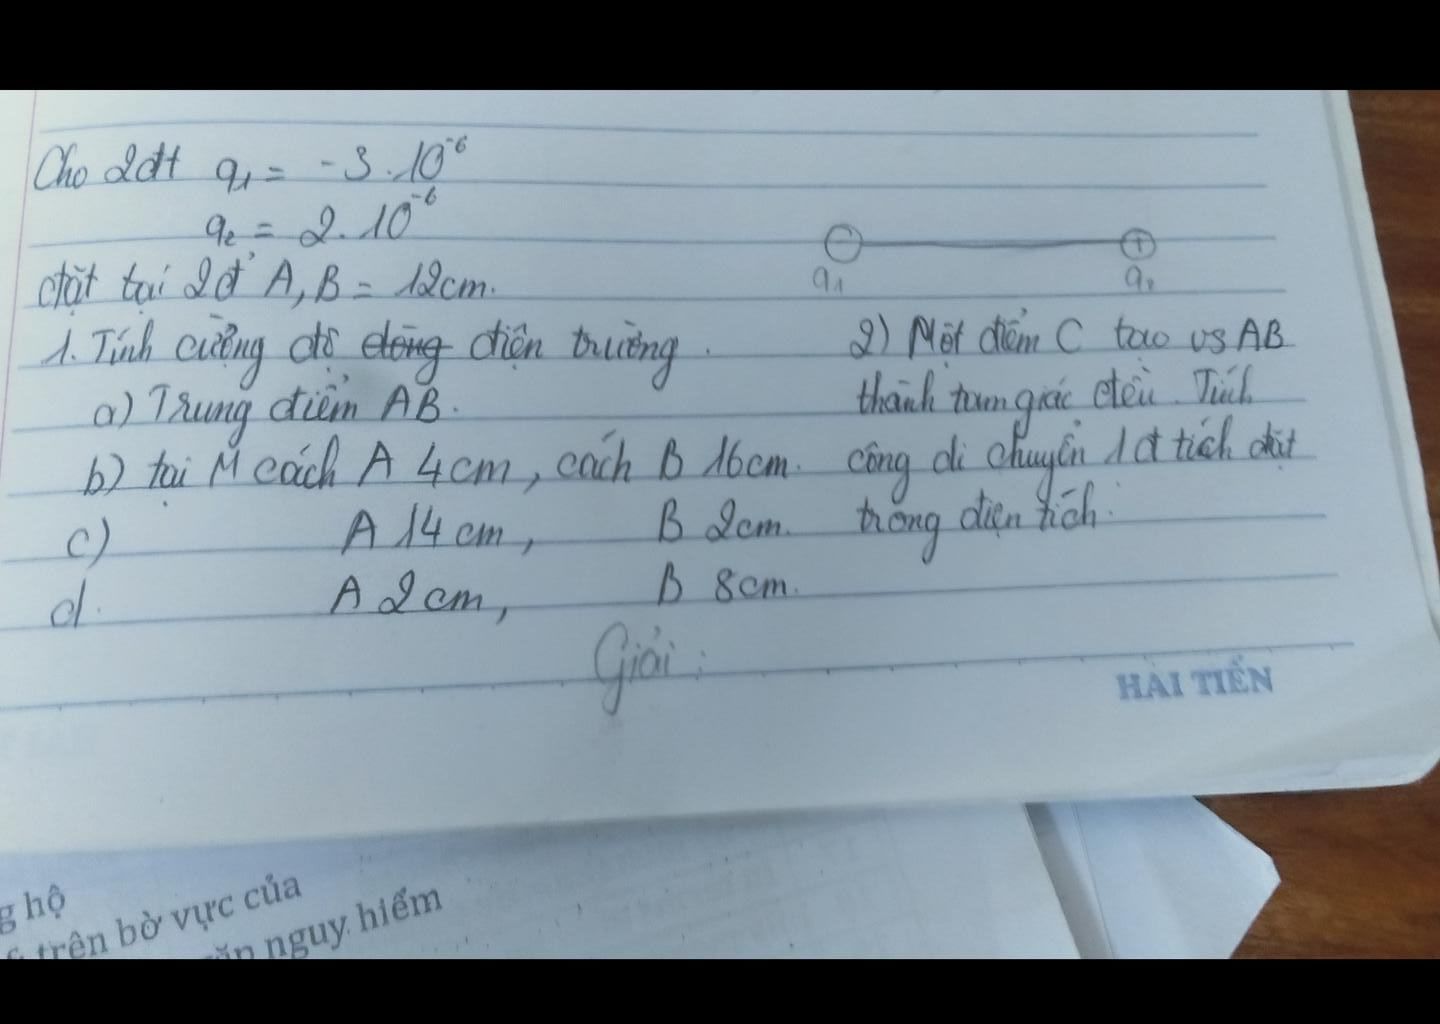 Cho 2đt q₁ = -3.10⁻⁶
q₂ = 2.10⁻⁶
đặt tại 2đ' A, B = 12cm.
q₁ q₂
1. Tính cường độ dòng điện trường.
a) Trung điểm AB.
b) tại M cách A 4cm, cách B 16cm.
c) A 14cm, B 2cm.
d. A 2cm, B 8cm.
2) Một điểm C tạo vs AB
thành tam giác đều. Tính
công di chuyển 1 đ tích đặt
trong điện tích.
Giải:
HẢI TIẾN
g hộ
trên bờ vực của
nguy hiểm